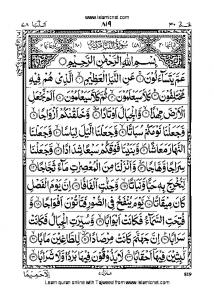 www.islamicnet.com
عم ۳۰ ۸۱۹ النبا ۷۸
سُوْرَةُ النَّبَاِ مَكِّيَّةٌ
بِسْمِ اللهِ الرَّحْمٰنِ الرَّحِيْمِ
عَمَّ يَتَسَآءَلُوْنَ ۝ عَنِ النَّبَاِ الْعَظِيْمِ ۝ الَّذِيْ هُمْ فِيْهِ
مُخْتَلِفُوْنَ ۝ كَلَّا سَيَعْلَمُوْنَ ۝ ثُمَّ كَلَّا سَيَعْلَمُوْنَ ۝ اَلَمْ نَجْعَلِ
الْاَرْضَ مِهٰدًا ۝ وَّالْجِبَالَ اَوْتَادًا ۝ وَّخَلَقْنٰكُمْ اَزْوَاجًا ۝ وَّ
جَعَلْنَا نَوْمَكُمْ سُبَاتًا ۝ وَّجَعَلْنَا الَّيْلَ لِبَاسًا ۝ وَّجَعَلْنَا
النَّهَارَ مَعَاشًا ۝ وَّبَنَيْنَا فَوْقَكُمْ سَبْعًا شِدَادًا ۝ وَّجَعَلْنَا
سِرَاجًا وَّهَّاجًا ۝ وَّاَنْزَلْنَا مِنَ الْمُعْصِرٰتِ مَآءً ثَجَّاجًا ۝
لِّنُخْرِجَ بِهٖ حَبًّا وَّنَبَاتًا ۝ وَّجَنّٰتٍ اَلْفَافًا ۝ اِنَّ يَوْمَ الْفَصْلِ
كَانَ مِيْقَاتًا ۝ يَّوْمَ يُنْفَخُ فِي الصُّوْرِ فَتَاْتُوْنَ اَفْوَاجًا ۝
وَّفُتِحَتِ السَّمَآءُ فَكَانَتْ اَبْوَابًا ۝ وَّسُيِّرَتِ الْجِبَالُ فَكَانَتْ
سَرَابًا ۝ اِنَّ جَهَنَّمَ كَانَتْ مِرْصَادًا ۝ لِّلطَّاغِيْنَ مَاٰبًا ۝
لّٰبِثِيْنَ فِيْهَآ اَحْقَابًا ۝ لَا يَذُوْقُوْنَ فِيْهَا بَرْدًا
819
Learn quran online with Tajweed from www.islamicnet.com